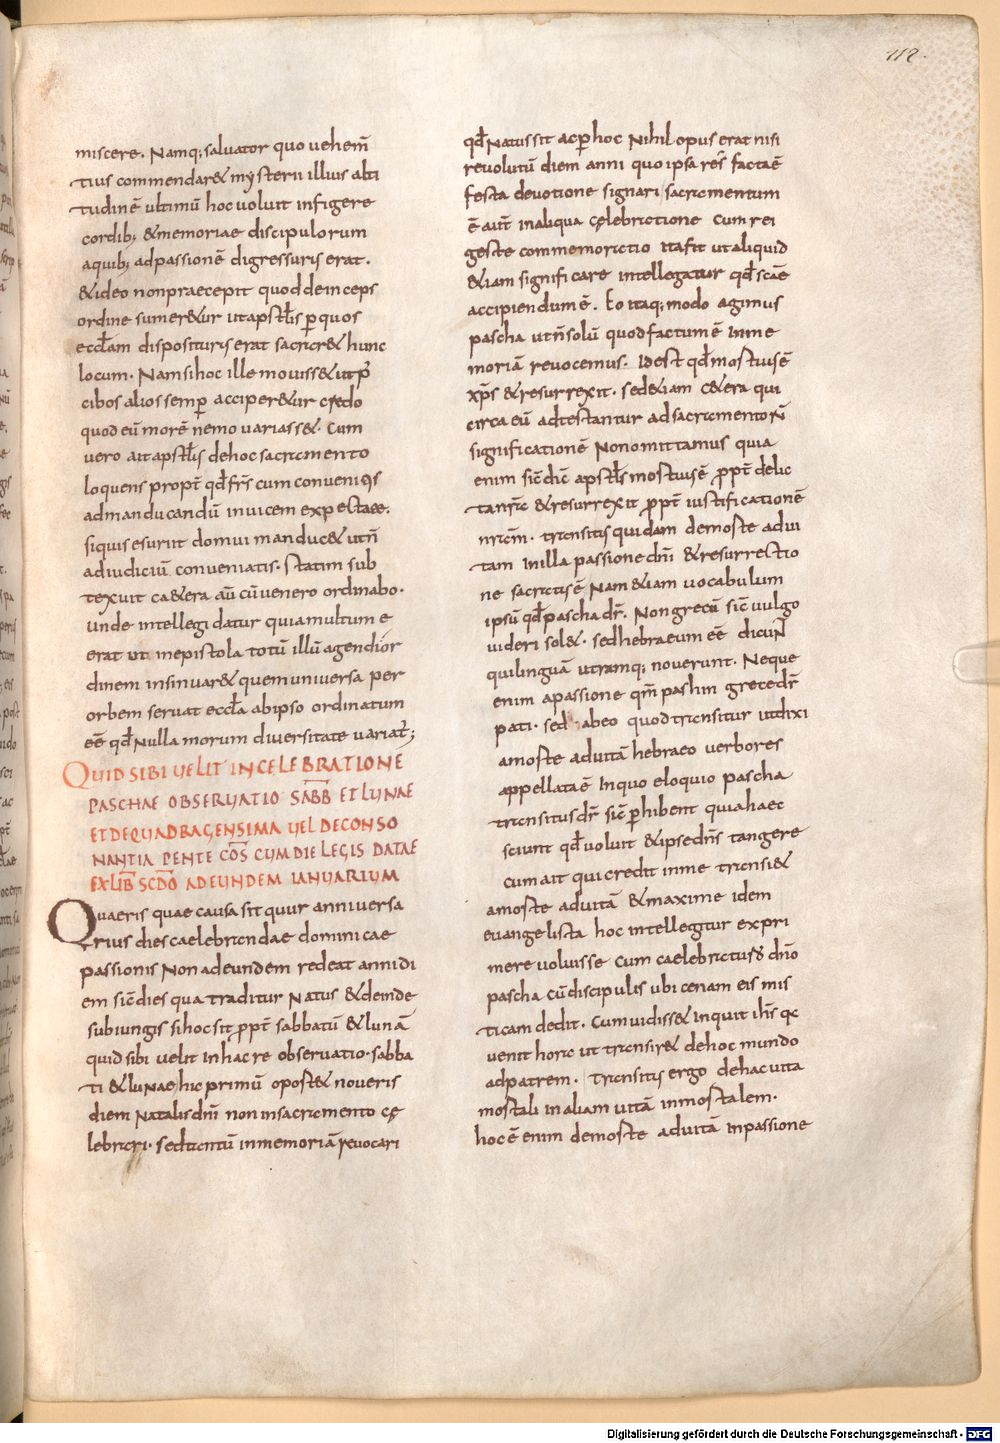 112.
miscere. Namq; saluator quo uehem̄
tius commendar& mysterii illius alti
tudinē ultimū hoc uoluit infigere
cordib; &memoriae discipulorum
aquib; adpassionē digressurus erat.
&ideo nonpraecepit quod deinceps
ordine sumer&ur ut apstl̄is ꝑ quos
eccl̄am dispositurus erat seruar& hunc
locum. Nam si hoc ille monuiss& ut
cibos alios semꝑ acciper&ur credo
quod eū morē nemo uariass&. Cum
uero ait apstl̄s dehoc sacramento
loquens propt̄ qd̄ frs̄ cum conuenitis
admanducandū inuicem expectate.
siquis esurit domui manduc& utn̄
adiudiciū conueniatis. statim sub
texuit ca&era aū cū uenero ordinabo.
unde intellegi datur quia multum e
erat ut inepistola totū illū agendi or
dinem insinuar& quem uniuersa per
orbem seruat eccl̄a abipso ordinatum
eē qd̄ Nulla morum diuersitate uariat̄;
QUID SIBI UELIT INCELEBRATIONE
PASCHAE OBSERUATIO SABB̄ ET LUNAE
ET DE QUADRAGENSIMA UEL DE CONSO
NANTIA PENTECOS̄ CUM DIE LEGIS DATAE
EX LIB̄ SCD̄O AD EUNDEM IANUARIUM
Quaeris quae causa sit quur anniuersa
rius dies caelebrandae dominicae
passionis Non adeundem redeat anni di
em sic̄ dies qua traditur Natus &deinde
subiungis si hoc sit ꝓpt̄ sabbatū &lunā
quid sibi uelit in hac re obseruatio sabba
ti &lunae hic primū oport& noueris
diem Natalis dn̄i non in sacramento cę
lebrari. sed tantū inmemoriā reuocari
qd̄ Natus sit ac ꝑ hoc Nihil opus erat nisi
reuolutū diem anni quo ipsa res factaē
festa deuotione signari sacramentum
ē aut̄ inaliqua cęlebratione Cum rei
geste commemoratio ita fit ut aliquid
&iam significare intellegatur qd̄ scāe
accipiendum ē. Eo itaq; modo agimus
pascha ut n̄ solū quod factum ē inme
moriā reuocemus. Id est qd̄ mortuus ē
xp̄s &resurrexit. sed &iam c&era qui
circa eū adtestantur ad sacramentorū
significationē Non omittamus quia
enim sic̄ dic̄ apstl̄s mortuus ē ꝓpt̄ delic
ta nr̄a &resurrexit ꝓpt̄ iustificationē
nr̄am. transitus quidam demorte adui
tam in illa passione dn̄i &resurrectio
ne sacratus ē Nam &iam uocabulum
ipsū qd̄ pascha dr̄. Non grecū sic̄ uulgo
uideri sol&. sed hebraeum eē dicunt
qui linguā utramq; nouerunt. Neque
enim apassione qm̄ pashin grece dr̄
pati. sed abeo quod transitur ut dixi
amorte aduitā hebraeo uerbo res
appellata ē Inquo eloquio pascha
transitus dr̄ sic̄ ꝑhibent quia haec
sciunt qd̄ uoluit &ipse dn̄s tangere
cum ait qui credit inme transi&
amorte aduitā &maxime idem
euangelista hoc intellegitur expri
mere uoluisse Cum caelebraturus dn̄o
pascha cū discipulis ubi cenam eis mis
ticam dedit. Cum uidiss& inquit ih̄s qa
uenit hora ut transir& dehoc mundo
adpatrem. Transitus ergo dehac uita
mortali in aliam uitā inmortalem.
hoc ē enim demorte aduitā inpassione
Digitalisierung gefördert durch die Deutsche Forschungsgemeinschaft - DFG